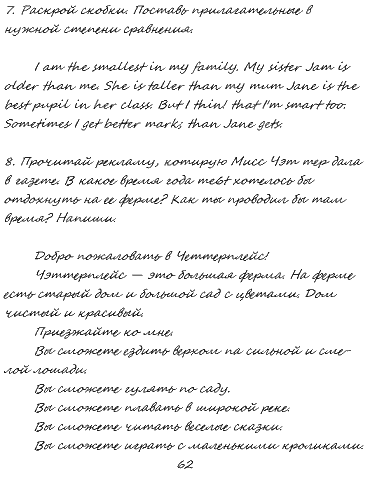 7. Раскрой скобки. Поставь прилагательные в
нужной степени сравнения.
I am the smallest in my family. My sister Jam is
older than me. She is taller than my mum Jane is the
best pupil in her class. But I thin! that I'm smart too.
Sometimes I get better mark; than Jane gets.
8. Прочитай рекламу, котирую Мисс Чэт тер дала
в газете. В какое время года me6t хотелось бы
отдохнуть на ее ферме? Как ты проводил бы там
время? Напиши.
Добро пожаловать в Четтерплейс!
Чэттерплейс — это большая ферма. На ферме
есть старый дом и большой сад с цветами. Дом
чистый и красивый.
Приезжайте ко мне.
Вы сможете ездить верхом па сильной и сме-
лой лошади.
Вы сможете гулять по саду.
Вы сможете плавать в широкой реке.
Вы сможете читать веселые сказки.
Вы сможете играть с маленькими кроликами.
62